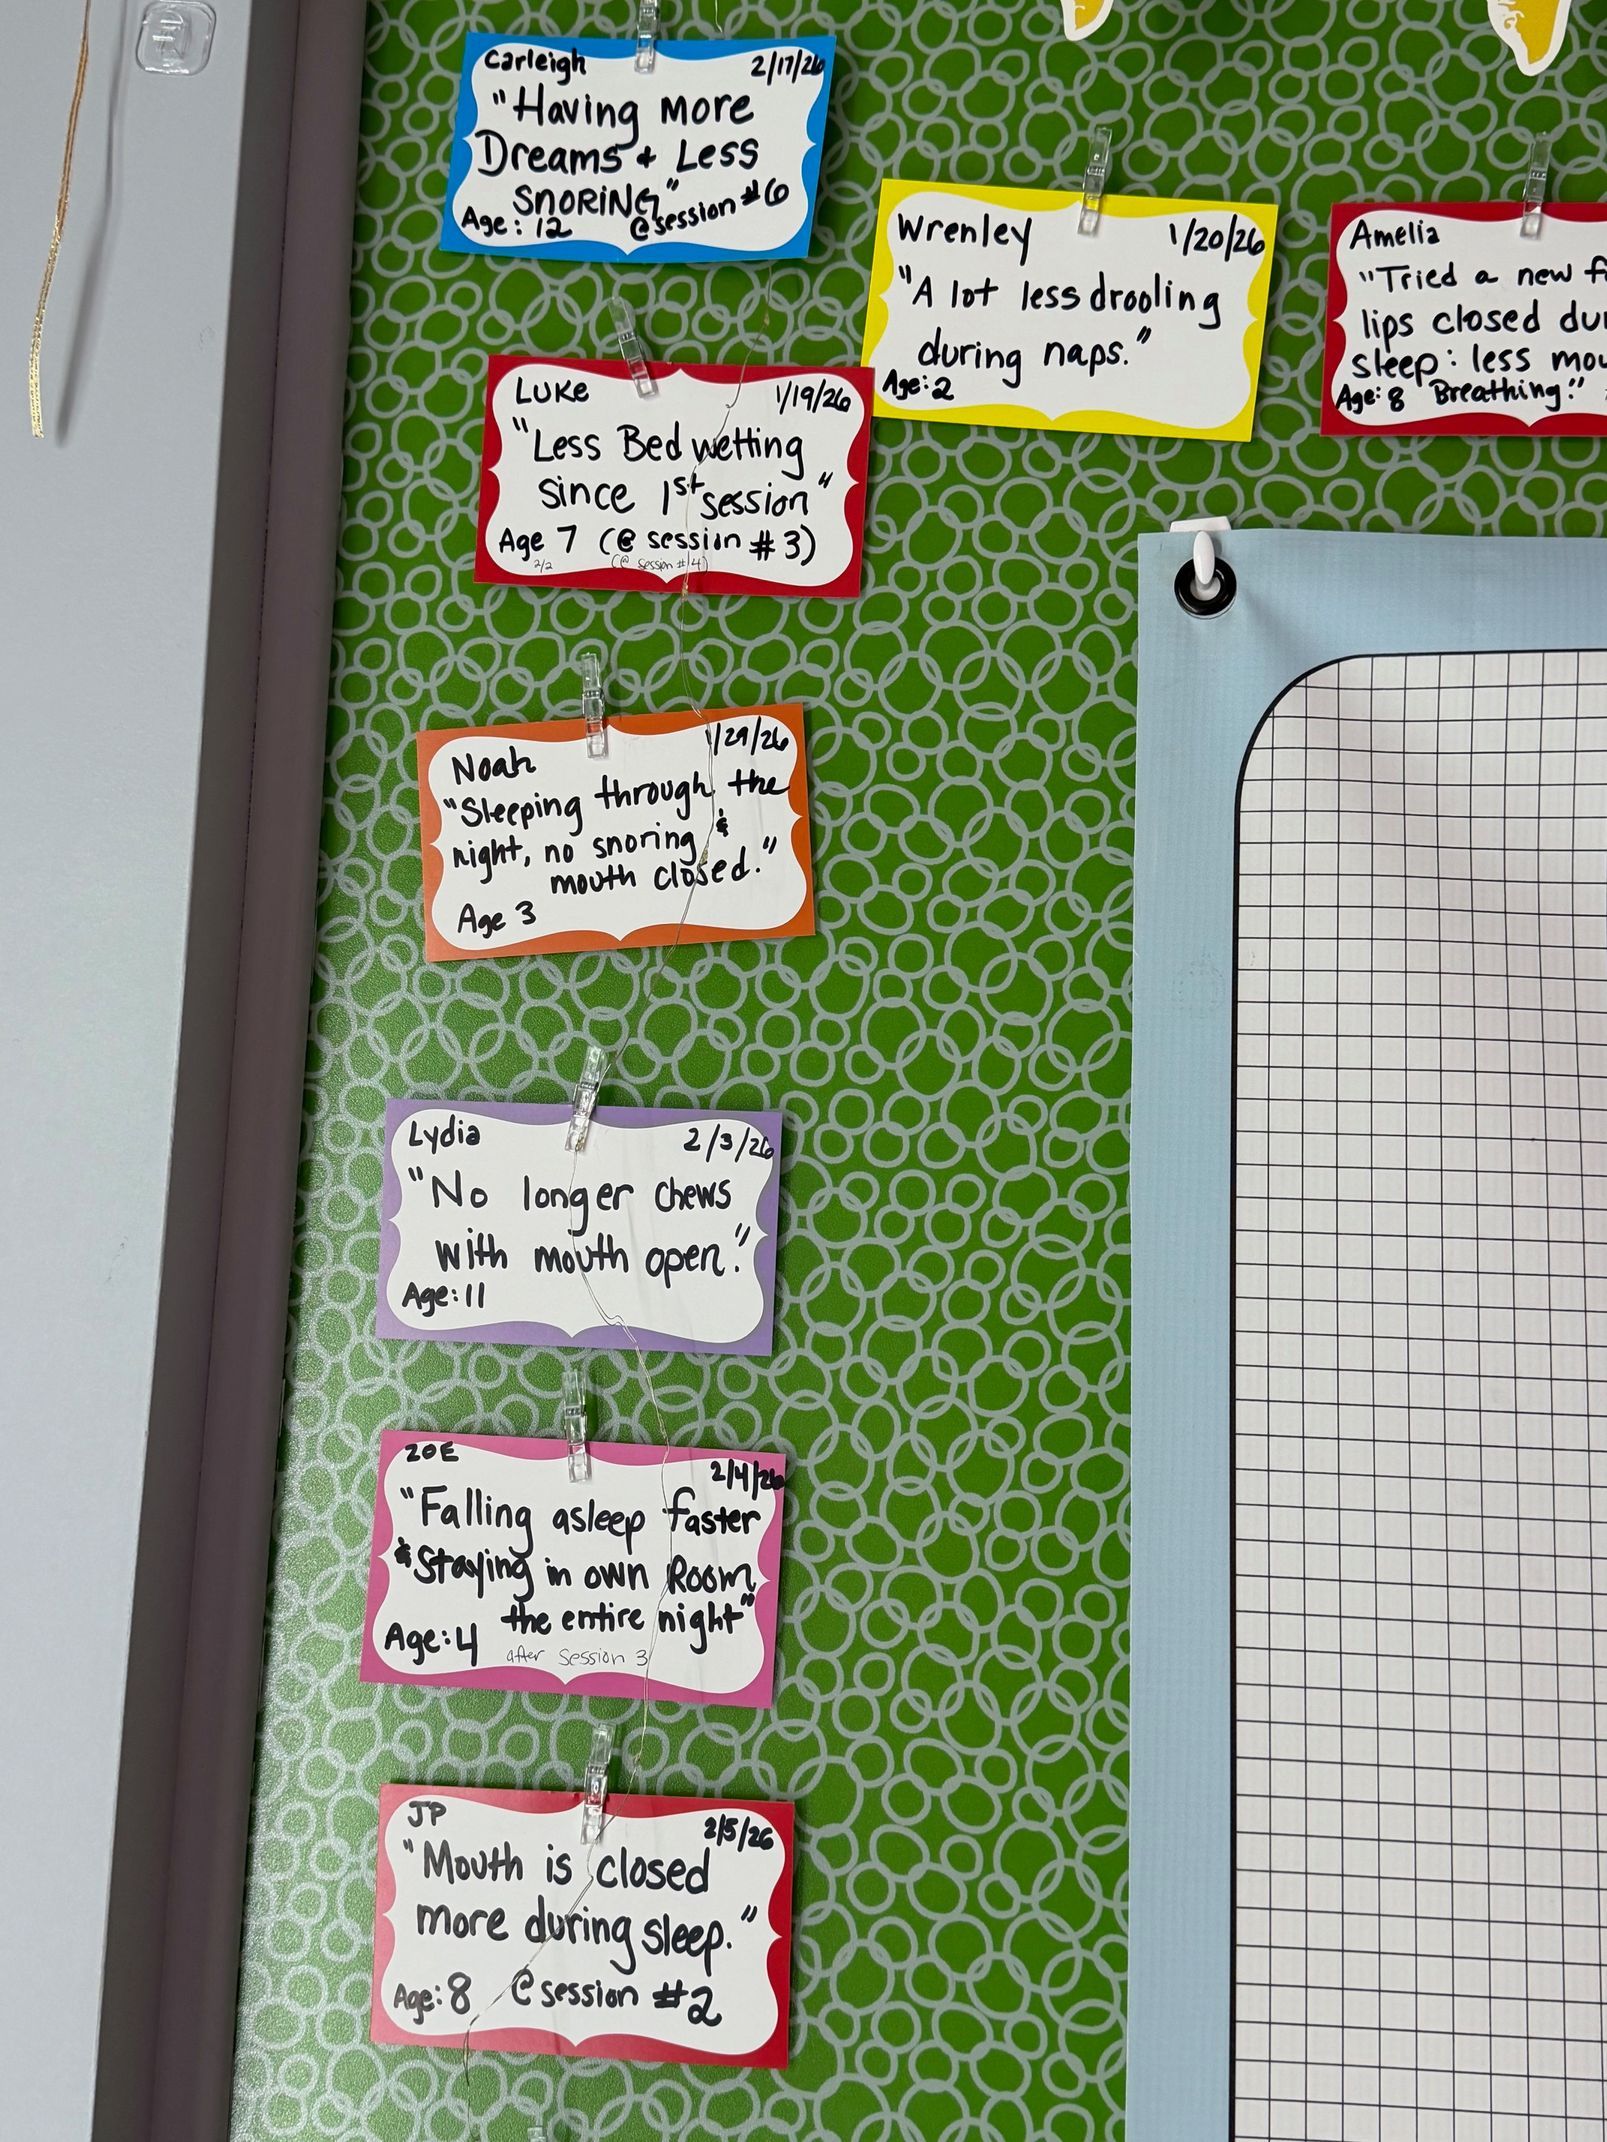 Carleigh 2/17/26
"Having more
Dreams + Less
SNORING"
Age: 12 @session #6
Wrenley 1/20/26
"A lot less drooling
during naps."
Age: 2
Amelia
"Tried a new
lips closed
sleep: less
Age: 8 Breathing."
LUKE 1/19/26
"Less Bed wetting
since 1st session"
Age 7 (@ session #3)
2/2 (@ session #4)
Noah 1/29/26
"Sleeping through the
night, no snoring &
mouth closed."
Age 3
Lydia 2/3/26
"No longer chews
with mouth open."
Age: 11
ZOE 2/4/26
"Falling asleep faster
& Staying in own Room
the entire night"
Age: 4 after session 3
JP 2/5/26
"Mouth is closed
more during sleep."
Age: 8 @session #2